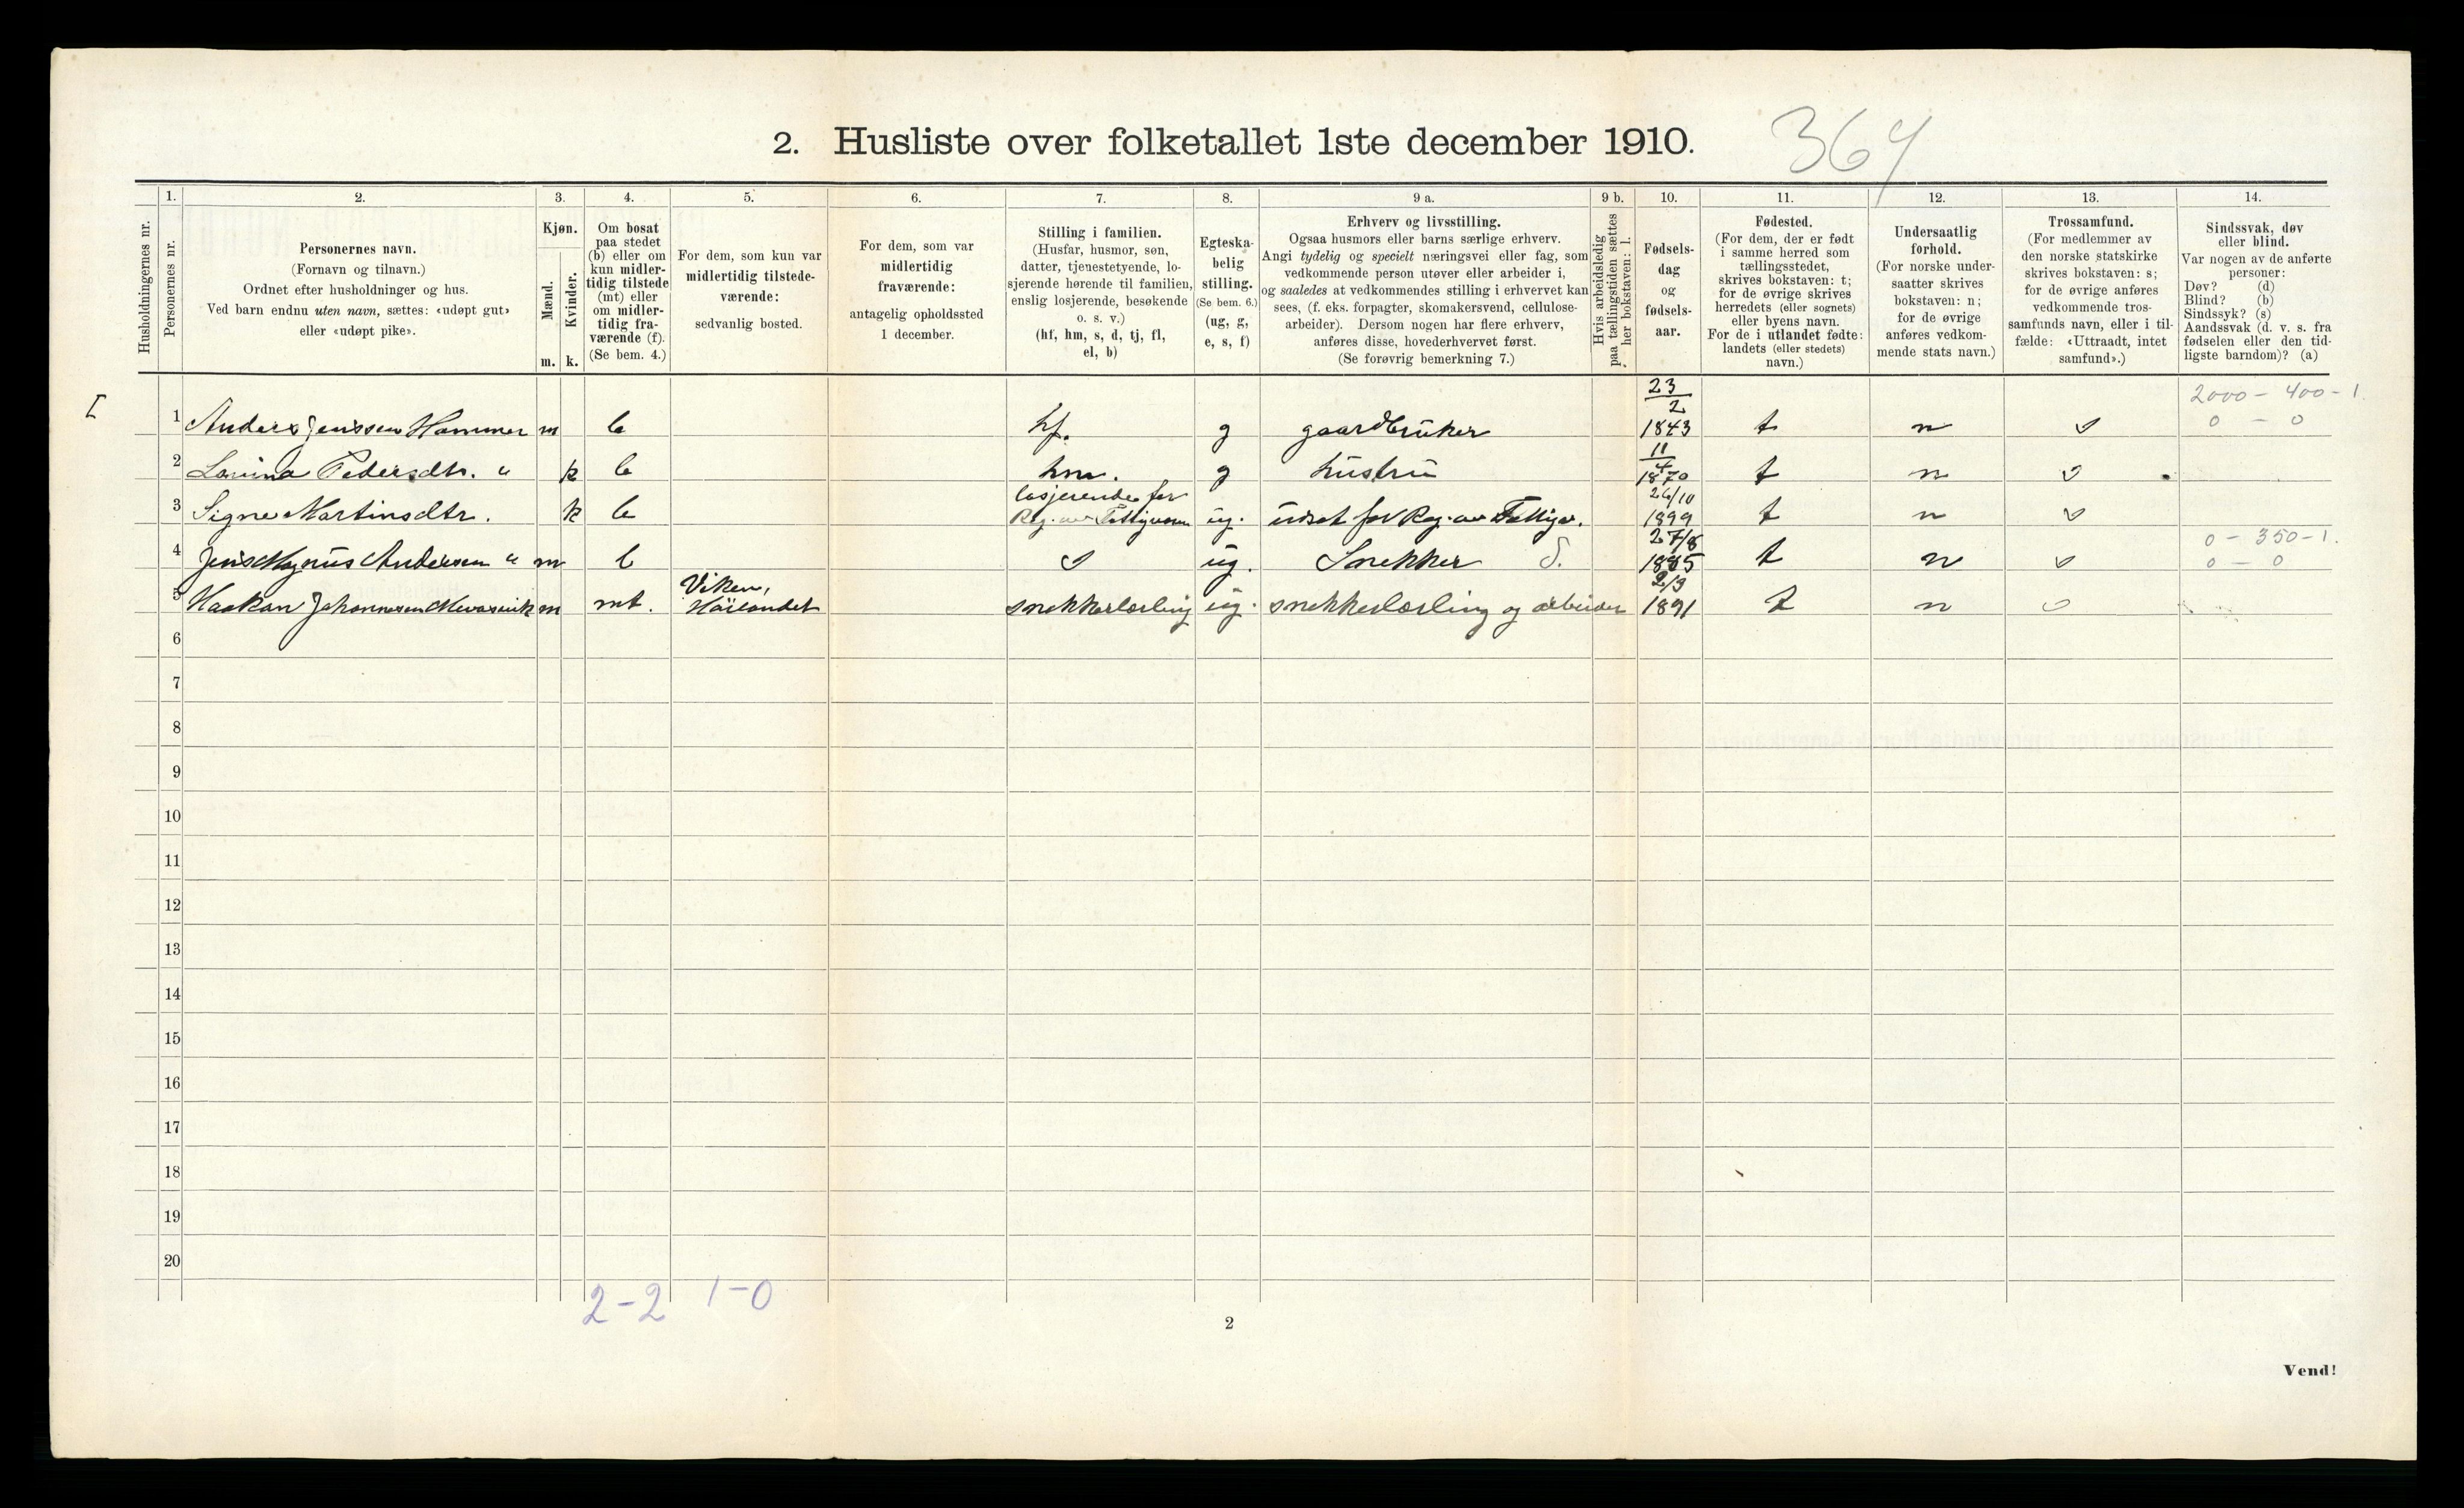 2. Husliste over folketallet 1ste december 1910.
364
Husholdningernes nr.
1.
Personernes nr.
2.
Personernes navn.
(Fornavn og tilnavn.)
Ordnet efter husholdninger og hus.
Ved barn endnu uten navn, sættes: «udøpt gut»
eller «udøpt pike».
3.
Kjøn.
Mænd.
m.
Kvinder.
k.
4.
Om bosat
paa stedet
(b) eller om
kun midler-
tidig tilstede
(mt) eller
om midler-
tidig fra-
værende (f).
(Se bem. 4.)
5.
For dem, som kun var
midlertidig tilstede-
værende:
sedvanlig bosted.
6.
For dem, som var
midlertidig
fraværende:
antagelig opholdssted
1 december.
7.
Stilling i familien.
(Husfar, husmor, søn,
datter, tjenestetyende, lo-
sjerende hørende til familien,
enslig losjerende, besøkende
o. s. v.)
(hf, hm, s, d, tj, fl,
el, b)
8.
Egteska-
belig
stilling.
(Se bem. 6.)
(ug, g,
e, s, f)
9 a.
Erhverv og livsstilling.
Ogsaa husmors eller barns særlige erhverv.
Angi tydelig og specielt næringsvei eller fag, som
vedkommende person utøver eller arbeider i,
og saaledes at vedkommendes stilling i erhvervet kan
sees, (f. eks. forpagter, skomakersvend, cellulose-
arbeider). Dersom nogen har flere erhverv,
anføres disse, hovederhvervet først.
(Se forøvrig bemerkning 7.)
9 b.
Hvis arbeidsledig
paa tællingstiden sættes
her bokstaven: l.
10.
Fødsels-
dag
og
fødsels-
aar.
11.
Fødested.
(For dem, der er født
i samme herred som
tællingsstedet,
skrives bokstaven: t;
for de øvrige skrives
herredets (eller sognets)
eller byens navn.
For de i utlandet fødte:
landets (eller stedets)
navn.)
12.
Undersaatlig
forhold.
(For norske under-
saatter skrives
bokstaven: n;
for de øvrige
anføres vedkom-
mende stats navn.)
13.
Trossamfund.
(For medlemmer av
den norske statskirke
skrives bokstaven: s;
for de øvrige anføres
vedkommende tros-
samfunds navn, eller i til-
fælde: «Uttraadt, intet
samfund».)
14.
Sindssvak, døv
eller blind.
Var nogen av de anførte
personer:
Døv? (d)
Blind? (b)
Sindssyk? (s)
Aandssvak (d. v. s. fra
fødselen eller den tid-
ligste barndom)? (a)
1 Anders Jenssen Hammer m b hf. g gaardbruker 23/2 1843 t n s 2000 - 400 - 1. 0 - 0
2 Lovina Pedersdtr. " k b hm. g hustru 11/4 1870 t n s
3 Signe Martinsdtr. k b losjerende for Reg. av Fattigvæsen ug. utsat for Reg. av Fattigv. 26/10 1899 t n s
4 Jens Magnus Andersen " m b s ug. Snekker S. 27/8 1885 t n s 0 - 350 - 1. 0 - 0
5 Haakon Johannesen m mt. Viken, Høilandet snekkerlærling ug. snekkerlærling og arbeider 2/9 1891 t n s
6
7
8
9
10
11
12
13
14
15
16
17
18
19
20
2-2 1-0
2
Vend!